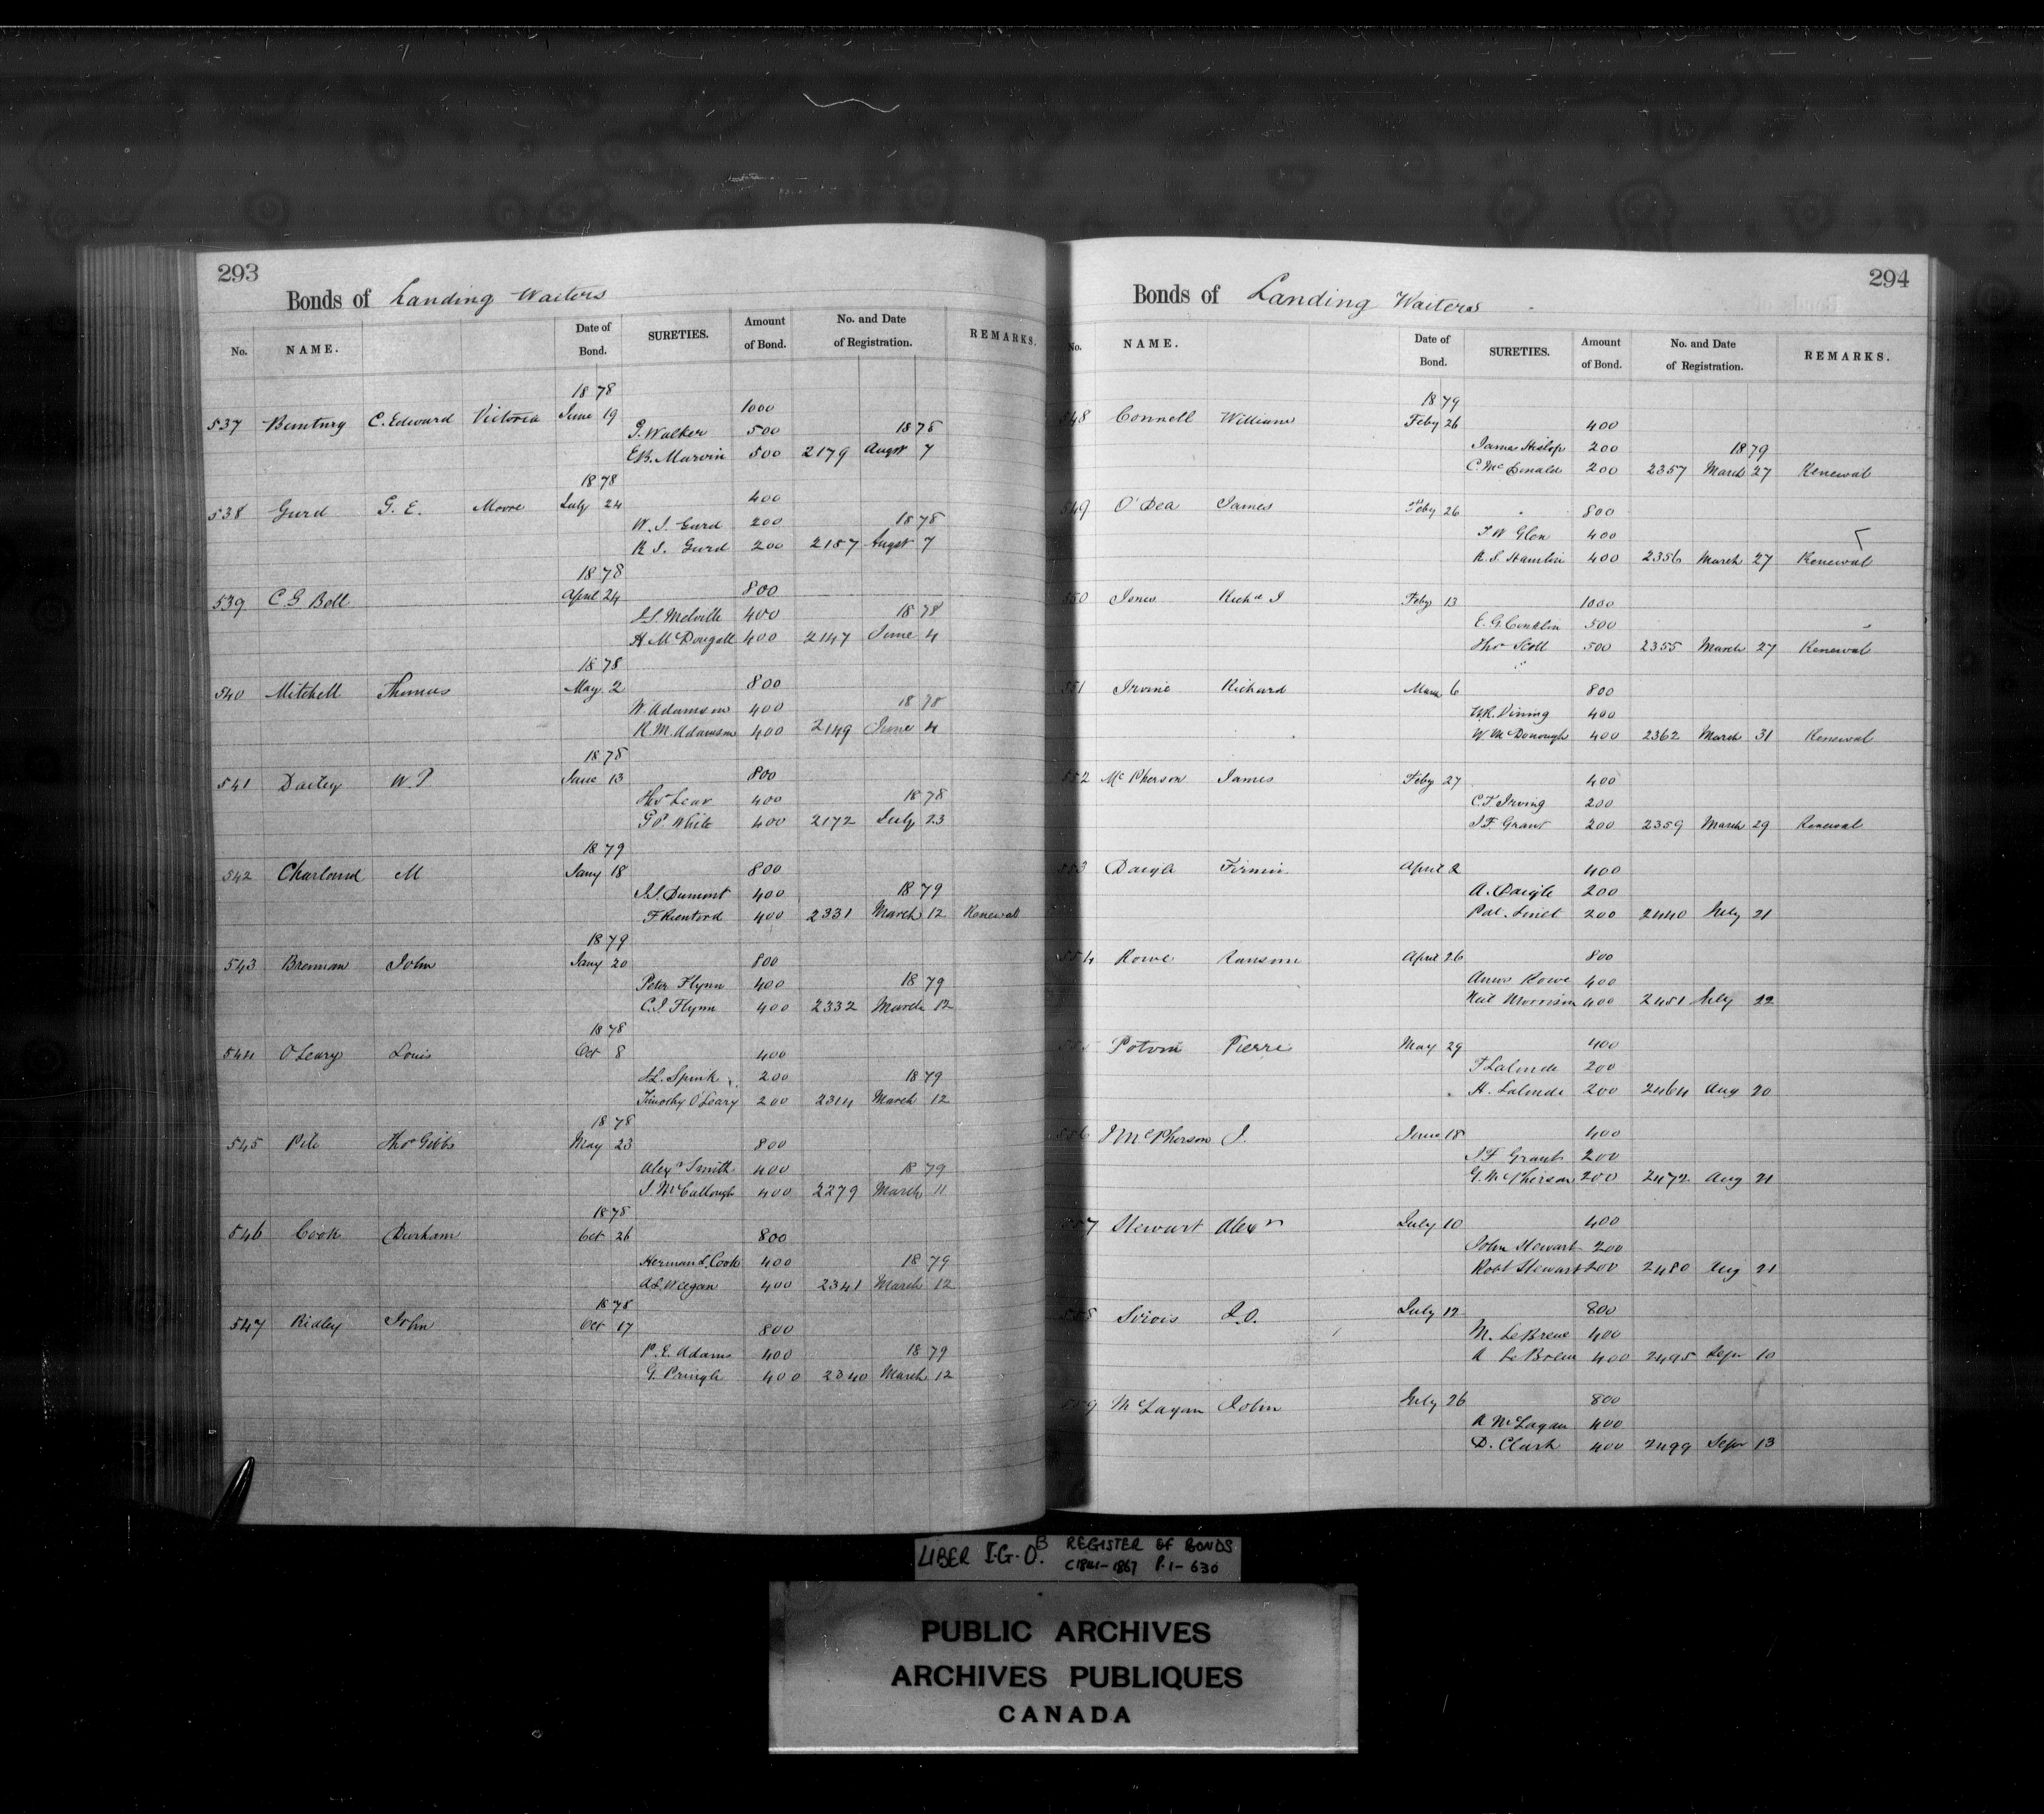 293
Bonds of Landing Waiters
No. NAME. Date of Bond. SURETIES. Amount of Bond. No. and Date of Registration. REMARKS.
1878
537 C. Edward Victoria June 19 1000
J. Walker 500 1878
E.B. Marvin 500 2179 Augst 7
1878
538 Gurd G. E. Moore July 24 400
W. J. Gurd 200 1878
R S. Gurd 200 2187 Augst 7
1878
539 C G Boll April 24 800
J.S. Melville 400 1878
A McDougall 400 2147 June 4
1878
540 Mitchell Thomas May 2 800
W. Adamson 400 1878
R. M. Adamson 400 2149 June 4
1878
541 Dailey W. P June 13 800
Thos Lear 400 1878
G P. White 400 2172 July 23
1879
542 M Jany 18 800
J.S. Dumont 400 1879
400 2331 March 12 Renewal
1879
543 Brennan John Jany 20 800
Peter Flynn 400 1879
C.J. Flynn 400 2332 March 12
1878
544 O'Leary Louis Oct 8 400
Spink 200 1879
Timothy O'Leary 200 2314 March 12
1878
545 Thos Gibbs May 23 800
Alexr Smith 400 1879
J. McCullough 400 2279 March 11
1878
546 Cook Durham Oct 26 800
Herman L. Cook 400 1879
400 2341 March 12
1878
547 Ridley John Oct 17 800
P. E. Adams 400 1879
G. Pringle 400 2340 March 12
294
Bonds of Landing Waiters
No. NAME. Date of Bond. SURETIES. Amount of Bond. No. and Date of Registration. REMARKS.
1879
548 Connell William Feby 26 400
James Hislop 200 1879
C. McDonald 200 2357 March 27 Renewal
549 O'Dea James Feby 26 800
J W Glen 400
R. S. Hamlin 400 2356 March 27 Renewal
550 Jones Richd J Feby 13 1000
E. G. Conklin 500
Thos Scott 500 2355 March 27 Renewal
551 Irvine Richard March 6 800
W.R. Vining 400
W McDonough 400 2362 March 31 Renewal
552 McPherson James Feby 27 400
C.F. Irving 200
J.F. Grant 200 2359 March 29 Renewal
553 Daigle Firmin April 2 400
A. Daigle 200
200 2440 July 21
554 Rowe Ransom April 26 800
Rowe 400
Neil Morrison 400 2451 July 22
555 Potvin Pierre May 29 400
F Lalonde 200
H. Lalonde 200 2464 Aug 20
556 McPherson J. June 18 400
J.F Grant 200
G. McPherson 200 2472 Aug 21
557 Stewart Alexr July 10 400
John Stewart 200
Robt Stewart 200 2480 Aug 21
558 Sirois J.O. July 12 800
M. LeBreux 400
A LeBreux 400 2495 Sepr 10
559 McLagan John July 26 800
A McLagan 400
D. Clark 400 2499 Sepr 13
LIBER I.G.O.B REGISTER OF BONDS
C1841-1867 P.1-630
PUBLIC ARCHIVES
ARCHIVES PUBLIQUES
CANADA